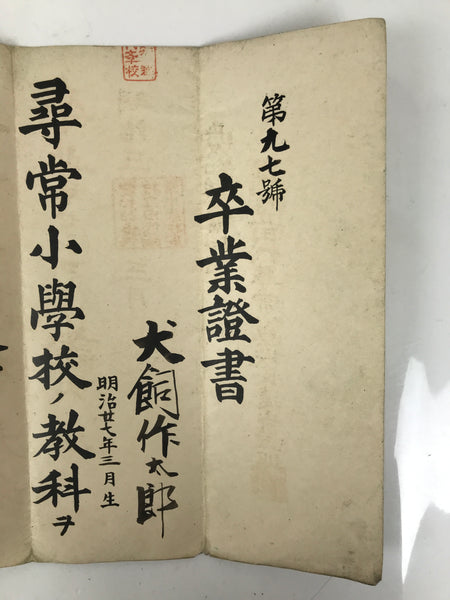 第九七號
卒業證書
犬飼作太郎
明治廿七年三月生
尋常小學校ノ教科ヲ